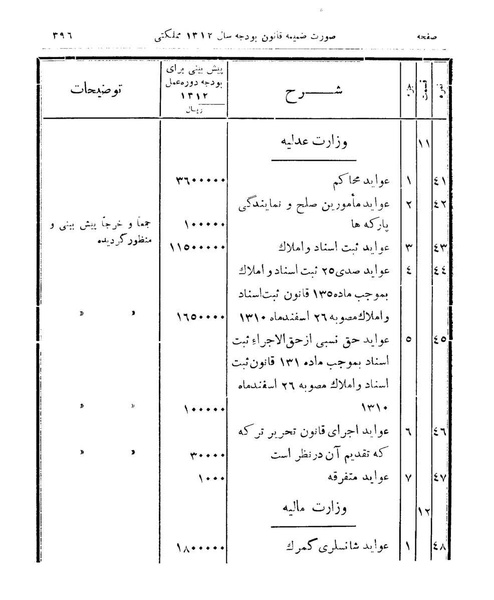 صفحه صورت ضمیمه قانون بودجه سال ۱۳۱۲ مملکتی ۳۹۶
نمره قسمت جزء شرح پیش بینی برای بودجه دوره عمل ۱۳۱۲ ریال توضیحات
۱۱ وزارت عدلیه
۴۱ ۱ عواید محاکم ۳۶۰۰۰۰۰
۴۲ ۲ عواید مأمورین صلح و نمایندگی
پارکه ها ۱۰۰۰۰۰ جمعاً و خرجاً پیش بینی و منظور گردیده
۴۳ ۳ عواید ثبت اسناد و املاک ۱۱۵۰۰۰۰۰
۴۴ ۴ عواید صدی ۲۵ ثبت اسناد و املاک
بموجب ماده ۱۳۵ قانون ثبت اسناد
و املاک مصوبه ۲۶ اسفندماه ۱۳۱۰ ۱۶۵۰۰۰۰ » »
۴۵ ۵ عواید حق نسبی از حق الاجراء ثبت
اسناد بموجب ماده ۱۳۱ قانون ثبت
اسناد و املاک مصوبه ۲۶ اسفندماه
۱۳۱۰ ۱۰۰۰۰۰ » »
۴۶ ۶ عواید اجرای قانون تحریر ترکه
که تقدیم آن در نظر است ۳۰۰۰۰ » »
۴۷ ۷ عواید متفرقه ۱۰۰۰
۱۲ وزارت مالیه
۴۸ ۱ عواید شانسلری گمرک ۱۸۰۰۰۰۰